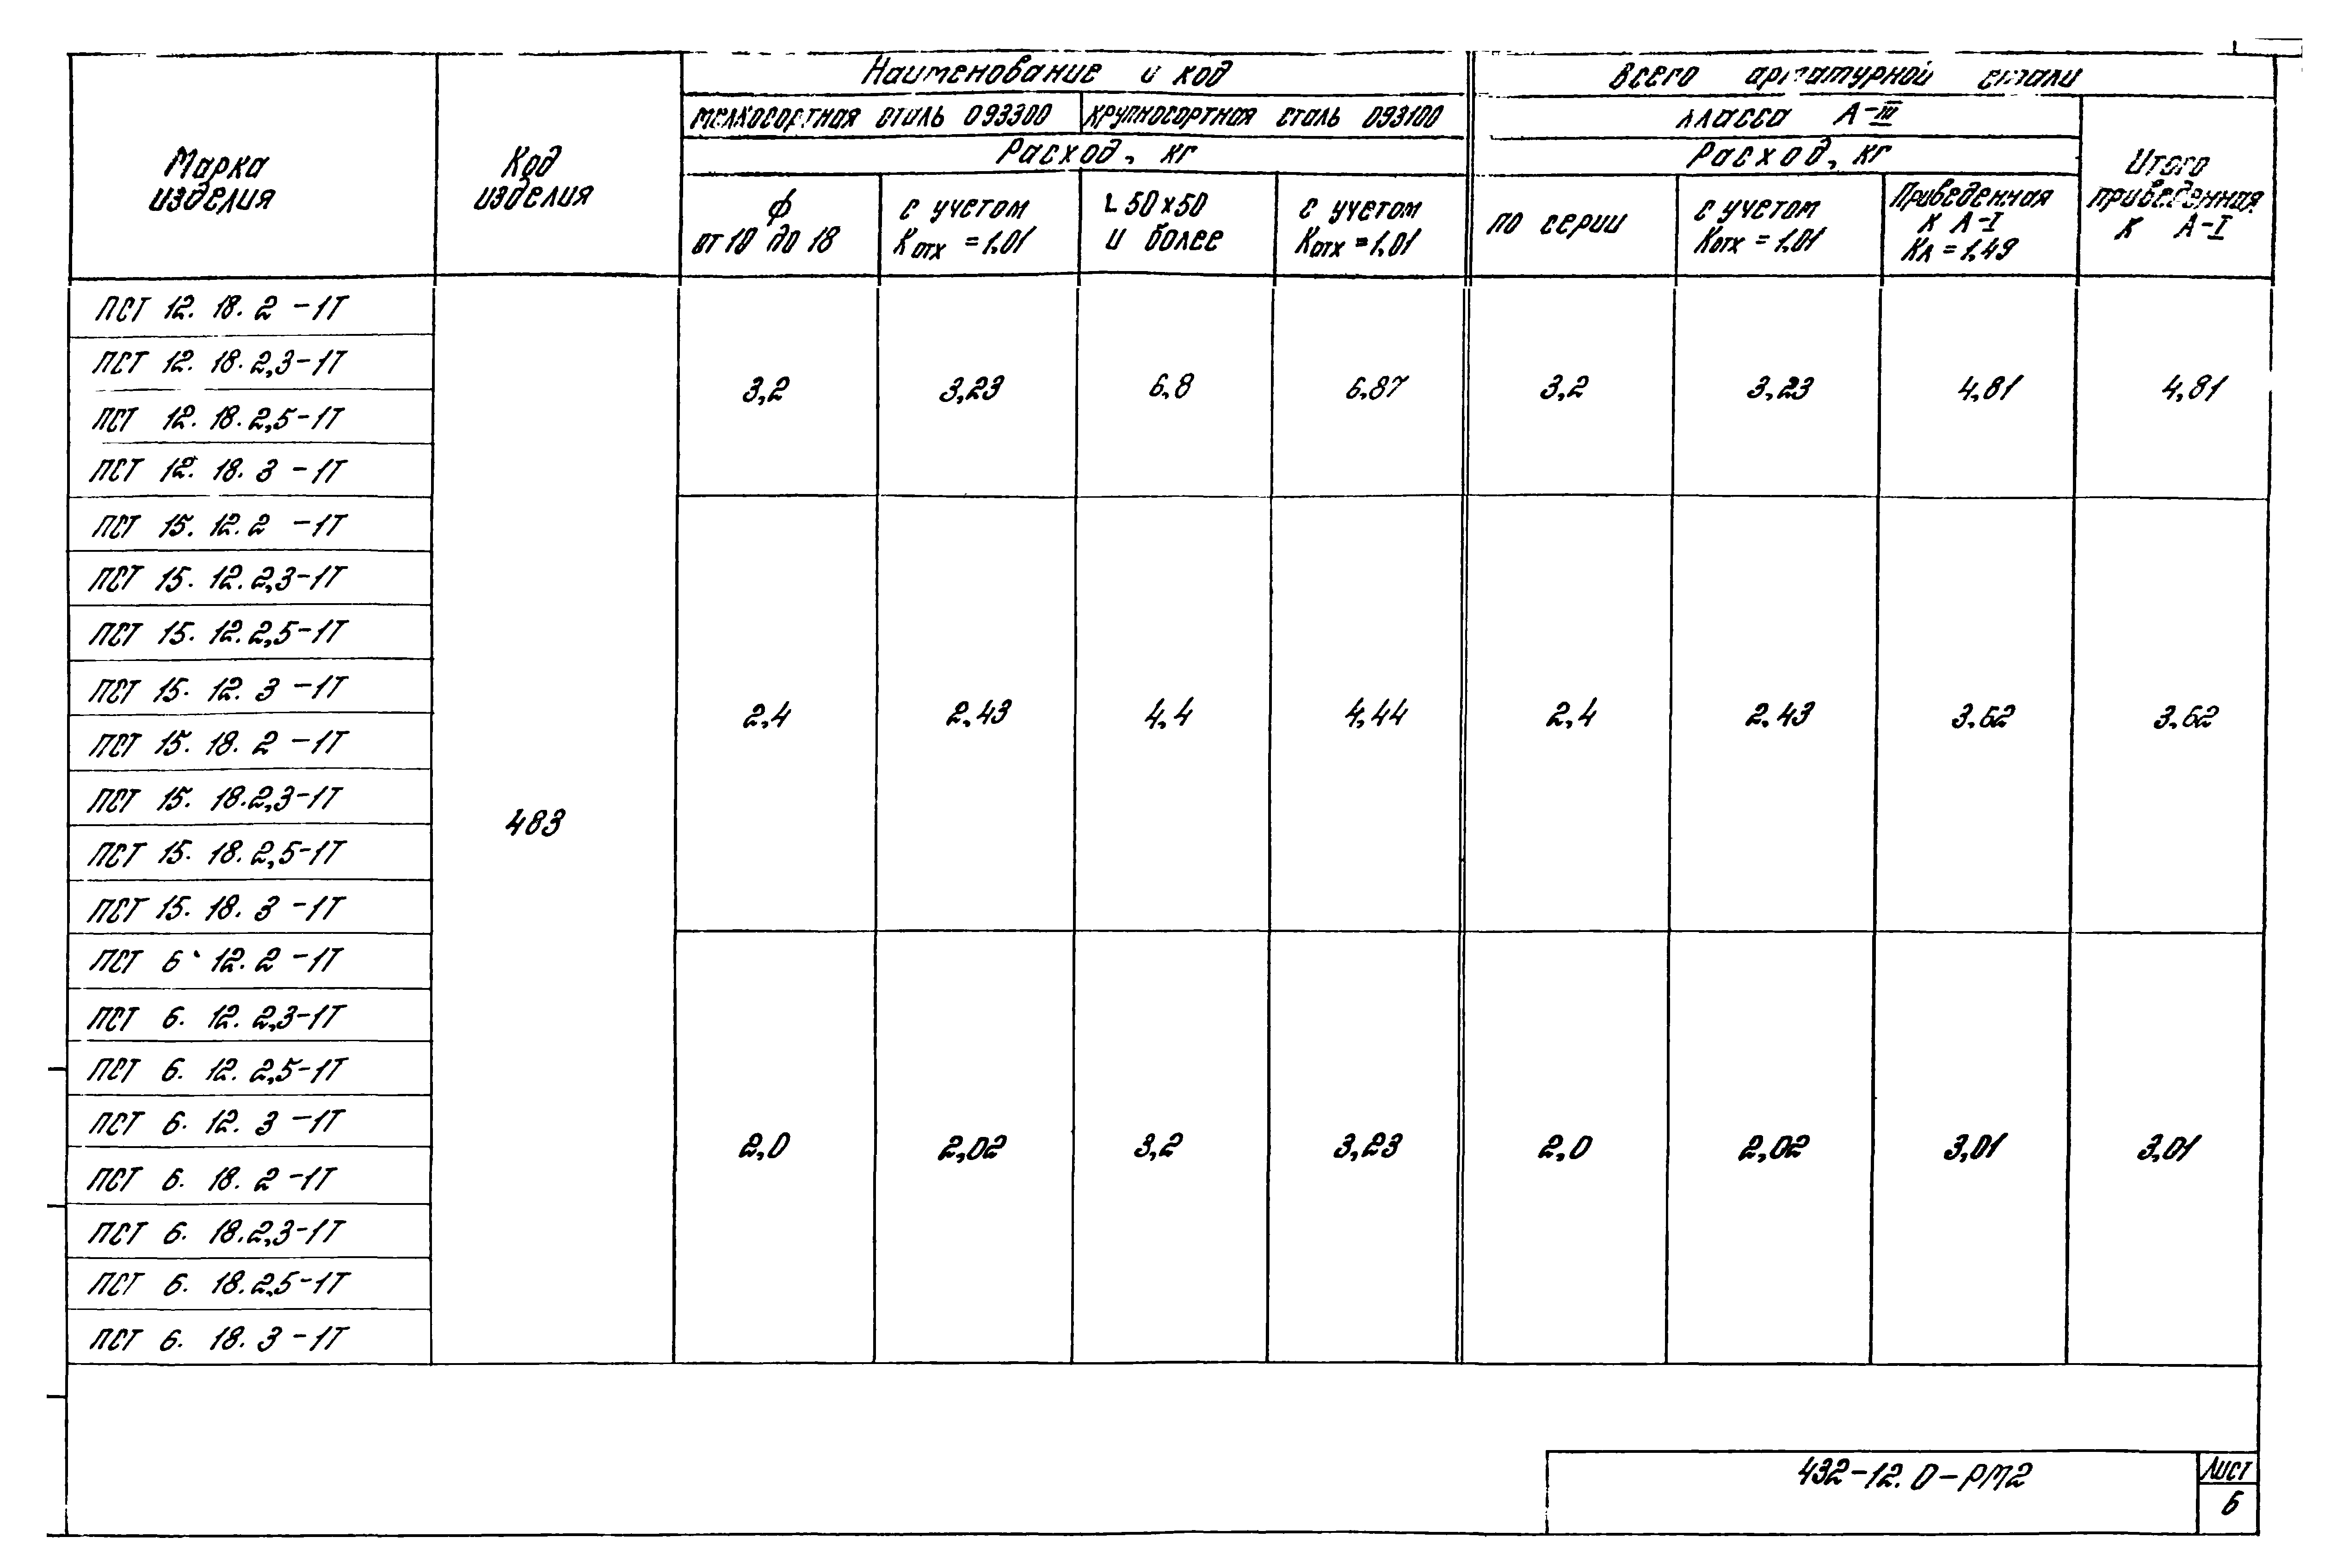 Марка изделия
Код изделия
Наименование и код
мелкосортная сталь 093300
крупносортная сталь 093100
Расход, кг
ϕ от 10 до 18
с учетом Kотх = 1,01
L 50×50 и более
с учетом Kотх = 1,01
Всего арматурной стали
класса А-III
Расход, кг
по серии
с учетом Kотх = 1,01
Приведенная к А-I Kл = 1,49
Итого приведенная к А-I
ПСТ 12. 18. 2 -1Т
ПСТ 12. 18. 2,3-1Т
ПСТ 12. 18. 2,5-1Т
ПСТ 12. 18. 3 -1Т
3,2 3,23 6,8 6,87 3,2 3,23 4,81 4,81
ПСТ 15. 12. 2 -1Т
ПСТ 15. 12. 2,3-1Т
ПСТ 15. 12. 2,5-1Т
ПСТ 15. 12. 3 -1Т
ПСТ 15. 18. 2 -1Т
ПСТ 15. 18. 2,3-1Т
ПСТ 15. 18. 2,5-1Т
ПСТ 15. 18. 3 -1Т
483
2,4 2,43 4,4 4,44 2,4 2,43 3,62 3,62
ПСТ 6. 12. 2 -1Т
ПСТ 6. 12. 2,3-1Т
ПСТ 6. 12. 2,5-1Т
ПСТ 6. 12. 3 -1Т
ПСТ 6. 18. 2 -1Т
ПСТ 6. 18. 2,3-1Т
ПСТ 6. 18. 2,5-1Т
ПСТ 6. 18. 3 -1Т
2,0 2,02 3,2 3,23 2,0 2,02 3,01 3,01
432-12. 0-РМ2
Лист
6